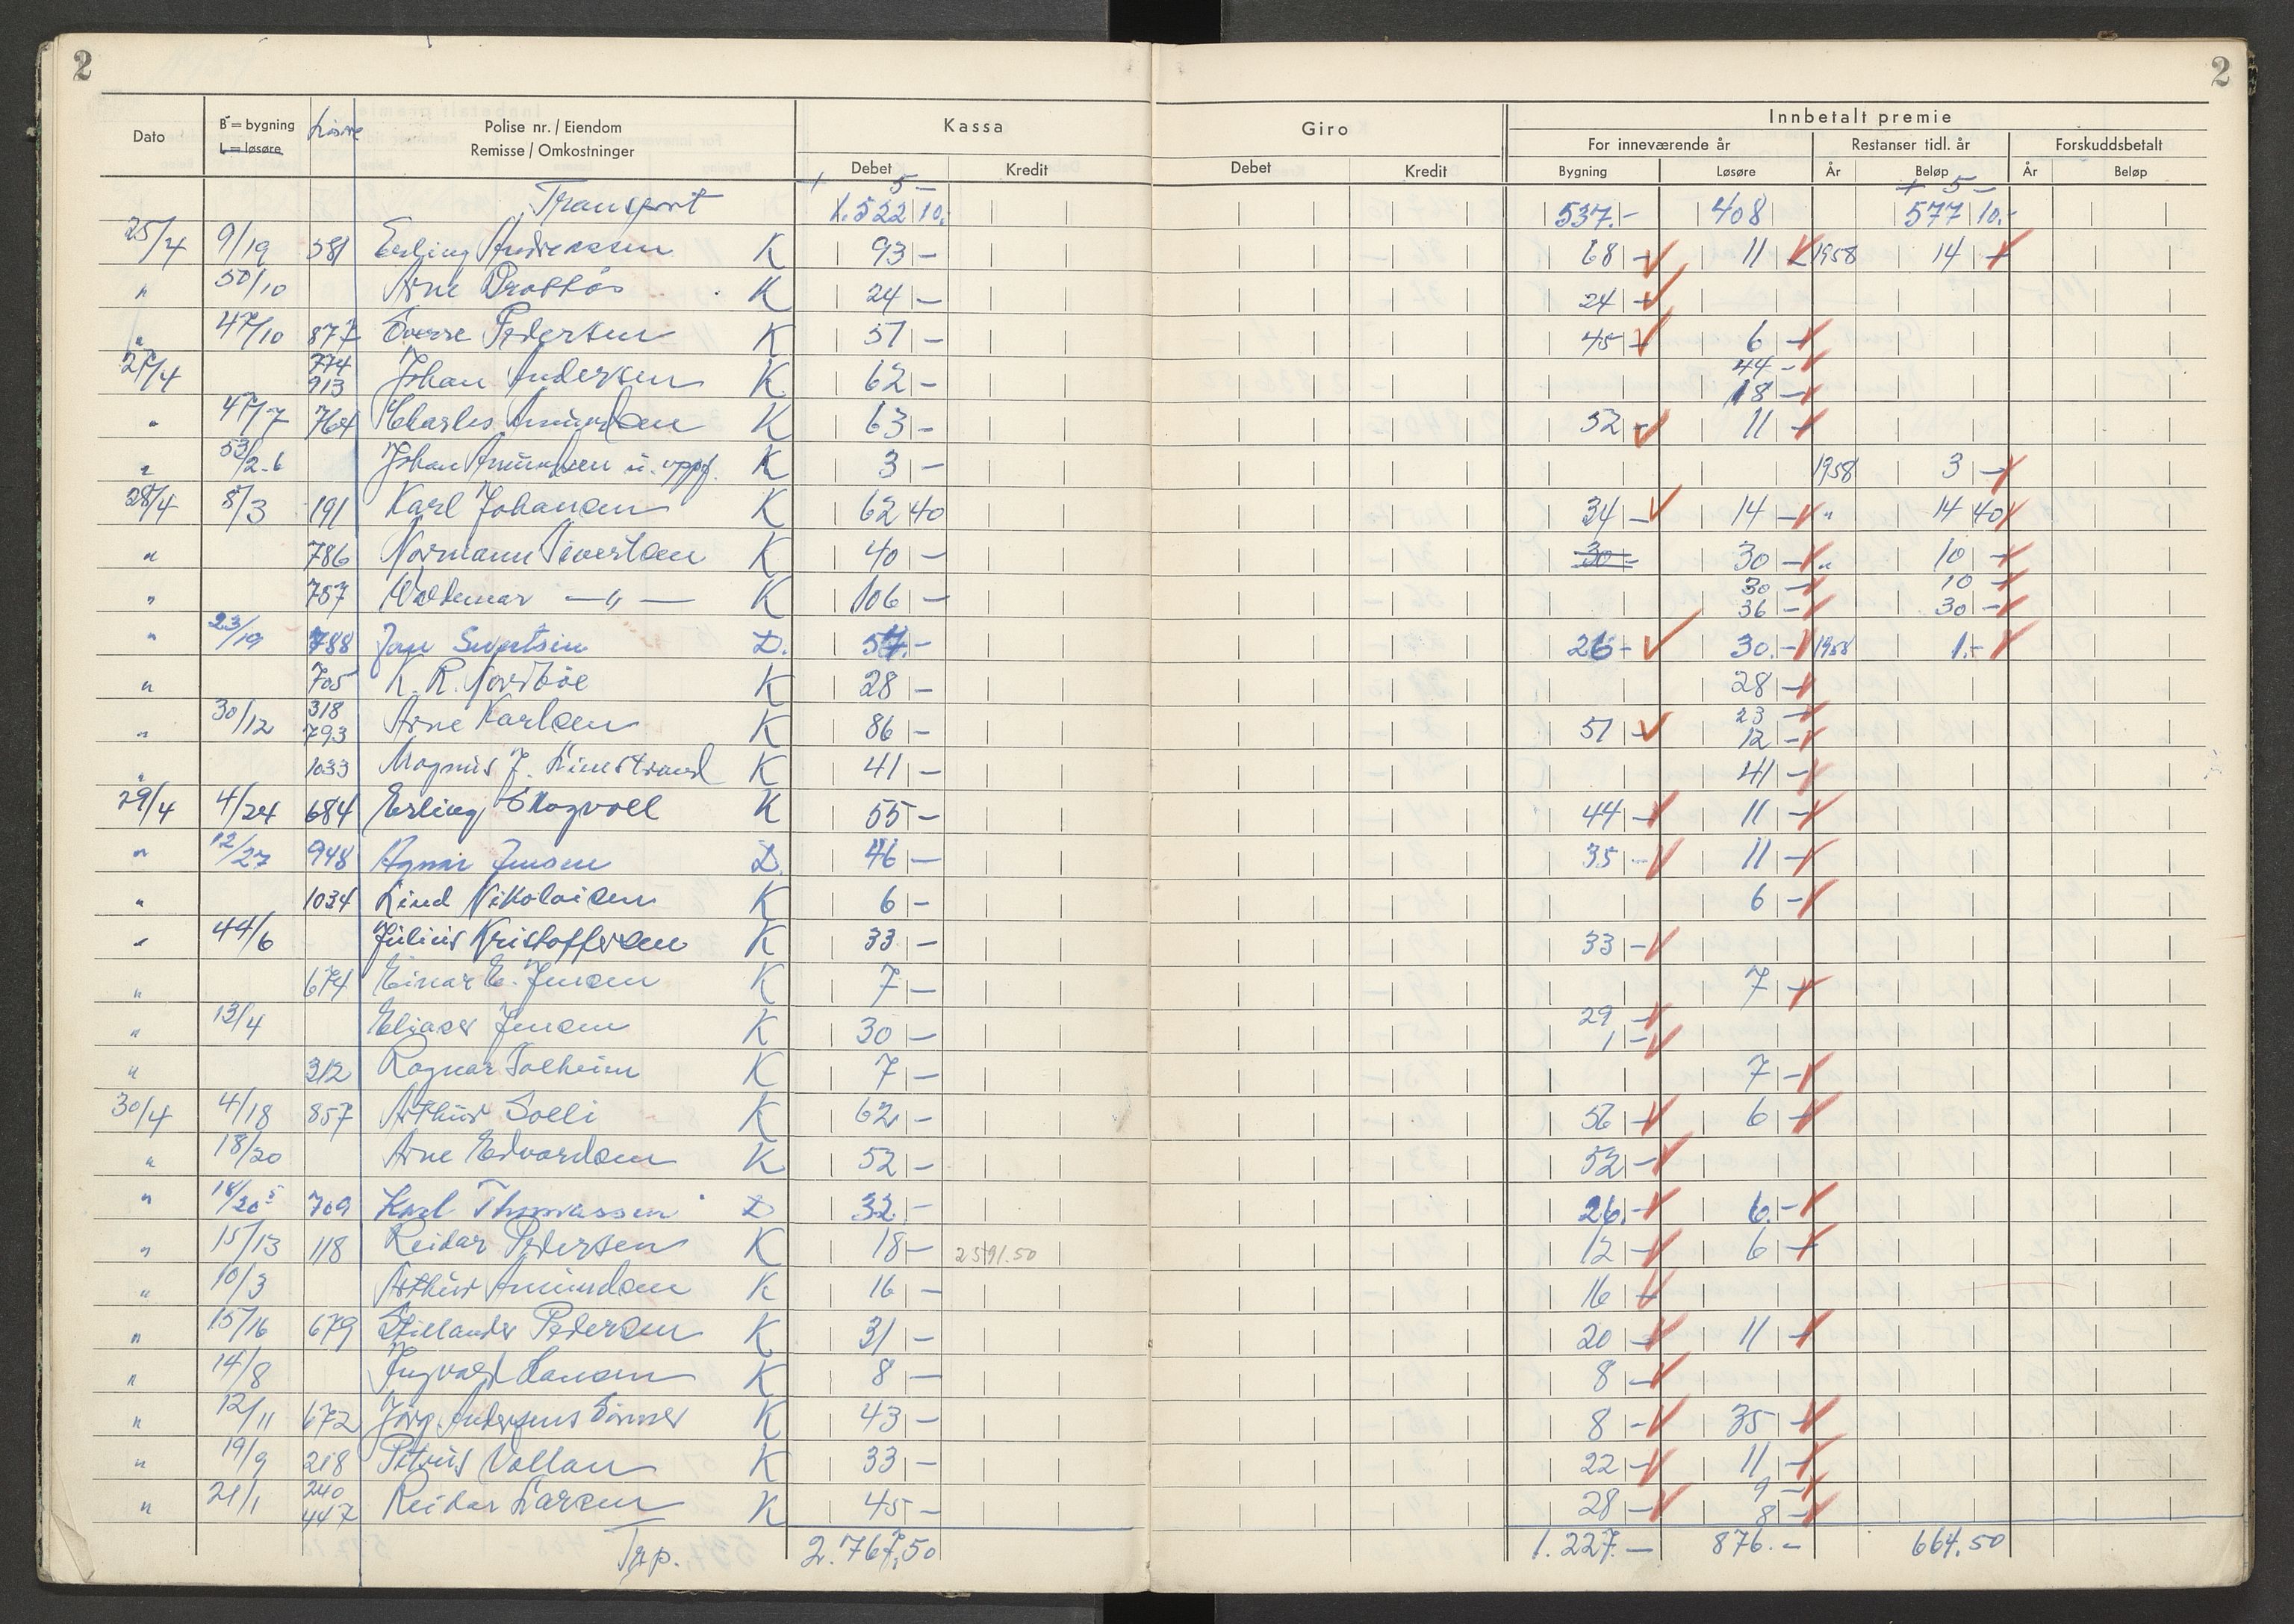 2 2
Dato B = bygning L = løsøre Løsøre Polise nr. / Eiendom Remisse / Omkostninger Kassa Debet Kredit Giro Debet Kredit Innbetalt premie For inneværende år Bygning Løsøre Restanser tidl. år År Beløp Forskuddsbetalt År Beløp
+ 5 — + 5 —
Transport 1.522 10. 537.- 408 577 10.-
25/4 9/19 381 Erling Andreassen K 93 — 68 — 11 1958 14 —
" 50/10 Arne K 24 — 24 —
" 47/10 877 Sverre Pedersen K 51 — 45 — 6 —
27/4 774 913 Johan Andersen K 62 — 44 — 18 —
" 47/7 764 Charles Amundsen K 63 — 52 — 11 —
" 53/2-6 Johan Amundsen u. oppg. K 3 — 1958 3 —
28/4 8/3 191 Karl Johansen K 62 40 34 — 14 — " 14 40
" 786 Normann Sivertsen K 40 — 30 — 30 — " 10 —
" 757 Waldemar —"— K 106 — 30 — 36 — 10 — 30 —
" 23/19 788 Jon Sivertsen D. 57.- 26 - 30.- 1958 1.-
" 705 K. R. Nordbøe K 28 — 28 —
" 30/12 318 793 Arne Karlsen K 86 — 51 — 23 — 12 —
" 1033 Magnus J. K 41 — 41 —
29/4 4/24 684 Erling Skogvoll K 55 — 44 — 11 —
" 12/27 948 Agnar Jensen D. 46 — 35 — 11 —
" 1034 Lind Nikolaisen K 6 — 6 —
" 44/6 Julius Kristoffersen K 33 — 33 —
" 674 Einar E. Jensen K 7 — 7 —
" 13/4 Eliaser Jensen K 30 — 29 — 1 —
" 312 Ragnar Solheim K 7 — 7 —
30/4 4/18 857 Arthur Solli K 62 — 56 — 6 —
" 18/20 Arne Edvardsen K 52 — 52 —
" 18/20 5 709 Karl Thomassen D 32 — 26.- 6.-
" 15/13 118 Reidar Pedersen K 18 — 2591.50 12 — 6 —
" 10/3 Arthur Amundsen K 16 — 16 —
" 15/16 679 Stillander Pedersen K 31 — 20 — 11 —
" 14/8 Ingvald Hansen K 8 — 8 —
" 12/11 672 Jørg. Andersens Sønner K 43 — 8 — 35 —
" 19/9 218 Petrus Vollan K 33 — 22 — 11 —
" 21/1 240 447 Reidar Larsen K 45 — 28 — 9 — 8 —
Trp. 2.767,50 1.227.— 876.- 664,50